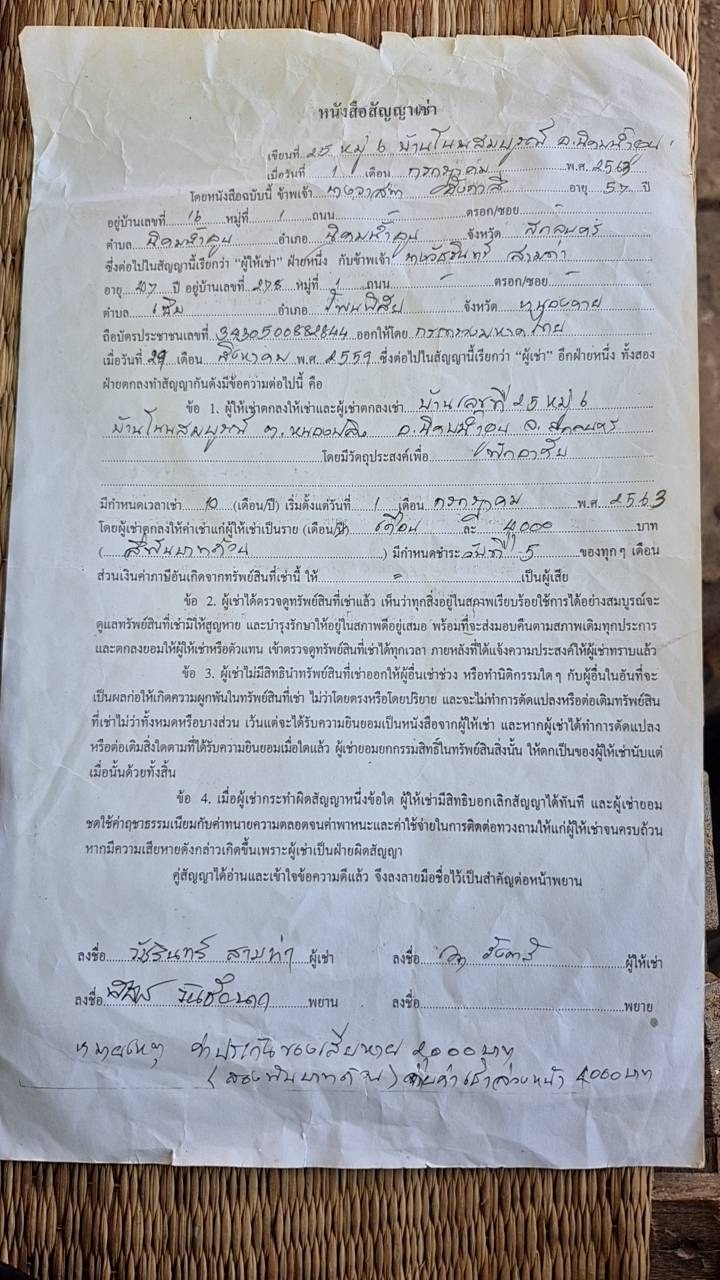 หนังสือสัญญาเช่า
เขียนที่ 25 หมู่ 6 บ้านโนนสมบูรณ์ อ.นิคมน้ำอูน
เมื่อวันที่ 1 เดือน กรกฎาคม พ.ศ. 2563
โดยหนังสือฉบับนี้ ข้าพเจ้า อายุ 57 ปี
อยู่บ้านเลขที่ 16 หมู่ที่ 1 ถนน - ตรอก/ซอย -
ตำบล นิคมน้ำอูน อำเภอ นิคมน้ำอูน จังหวัด สกลนคร
ซึ่งต่อไปในสัญญานี้เรียกว่า "ผู้ให้เช่า" ฝ่ายหนึ่ง กับข้าพเจ้า
อายุ ปี อยู่บ้านเลขที่ 278 หมู่ที่ 1 ถนน - ตรอก/ซอย -
ตำบล เซิม อำเภอ โพนพิสัย จังหวัด หนองคาย
ถือบัตรประชาชนเลขที่ ออกให้โดย กระทรวงมหาดไทย
เมื่อวันที่ 29 เดือน สิงหาคม พ.ศ. 2559 ซึ่งต่อไปในสัญญานี้เรียกว่า "ผู้เช่า" อีกฝ่ายหนึ่ง ทั้งสอง
ฝ่ายตกลงทำสัญญากันดังมีข้อความต่อไปนี้ คือ
ข้อ 1. ผู้ให้เช่าตกลงให้เช่าและผู้เช่าตกลงเช่า บ้านเลขที่ 25 หมู่ 6
บ้านโนนสมบูรณ์ ต.หนองปลิง อ.นิคมน้ำอูน จ.สกลนคร
โดยมีวัตถุประสงค์เพื่อ พักอาศัย
มีกำหนดเวลาเช่า 10 (เดือน/ปี) เริ่มตั้งแต่วันที่ 1 เดือน กรกฎาคม พ.ศ. 2563
โดยผู้เช่าตกลงให้ค่าเช่าแก่ผู้ให้เช่าเป็นราย (เดือน/ปี) เดือน ละ 4,000 บาท
( สี่พันบาทถ้วน ) มีกำหนดชำระ วันที่ 5 ของทุกๆ เดือน
ส่วนเงินค่าภาษีอันเกิดจากทรัพย์สินที่เช่านี้ ให้ - เป็นผู้เสีย
ข้อ 2. ผู้เช่าได้ตรวจดูทรัพย์สินที่เช่าแล้ว เห็นว่าทุกสิ่งอยู่ในสภาพเรียบร้อยใช้การได้อย่างสมบูรณ์จะ
ดูแลทรัพย์สินที่เช่ามิให้สูญหาย และบำรุงรักษาให้อยู่ในสภาพดีอยู่เสมอ พร้อมที่จะส่งมอบคืนตามสภาพเดิมทุกประการ
และตกลงยอมให้ผู้ให้เช่าหรือตัวแทน เข้าตรวจดูทรัพย์สินที่เช่าได้ทุกเวลา ภายหลังที่ได้แจ้งความประสงค์ให้ผู้เช่าทราบแล้ว
ข้อ 3. ผู้เช่าไม่มีสิทธินำทรัพย์สินที่เช่าออกให้ผู้อื่นเช่าช่วง หรือทำนิติกรรมใดๆ กับผู้อื่นในอันที่จะ
เป็นผลก่อให้เกิดความผูกพันในทรัพย์สินที่เช่า ไม่ว่าโดยตรงหรือโดยปริยาย และจะไม่ทำการดัดแปลงหรือต่อเติมทรัพย์สิน
ที่เช่าไม่ว่าทั้งหมดหรือบางส่วน เว้นแต่จะได้รับความยินยอมเป็นหนังสือจากผู้ให้เช่า และหากผู้เช่าได้ทำการดัดแปลง
หรือต่อเติมสิ่งใดตามที่ได้รับความยินยอมเมื่อใดแล้ว ผู้เช่ายอมยกกรรมสิทธิ์ในทรัพย์สินสิ่งนั้น ให้ตกเป็นของผู้ให้เช่านับแต่
เมื่อนั้นด้วยทั้งสิ้น
ข้อ 4. เมื่อผู้เช่ากระทำผิดสัญญาหนึ่งข้อใด ผู้ให้เช่ามีสิทธิบอกเลิกสัญญาได้ทันที และผู้เช่ายอม
ชดใช้ค่าฤชาธรรมเนียมกับค่าทนายความตลอดจนค่าพาหนะและค่าใช้จ่ายในการติดต่อทวงถามให้แก่ผู้ให้เช่าจนครบถ้วน
หากมีความเสียหายดังกล่าวเกิดขึ้นเพราะผู้เช่าเป็นฝ่ายผิดสัญญา
คู่สัญญาได้อ่านและเข้าใจข้อความดีแล้ว จึงลงลายมือชื่อไว้เป็นสำคัญต่อหน้าพยาน
ลงชื่อ วัชรินทร์ ผู้เช่า ลงชื่อ ผู้ให้เช่า
ลงชื่อ พยาน ลงชื่อ พยาย
หมายเหตุ ค่าประกันของเสียหาย 2,000 บาท
(สองพันบาทถ้วน) จ่ายค่าเช่าล่วงหน้า 4000 บาท